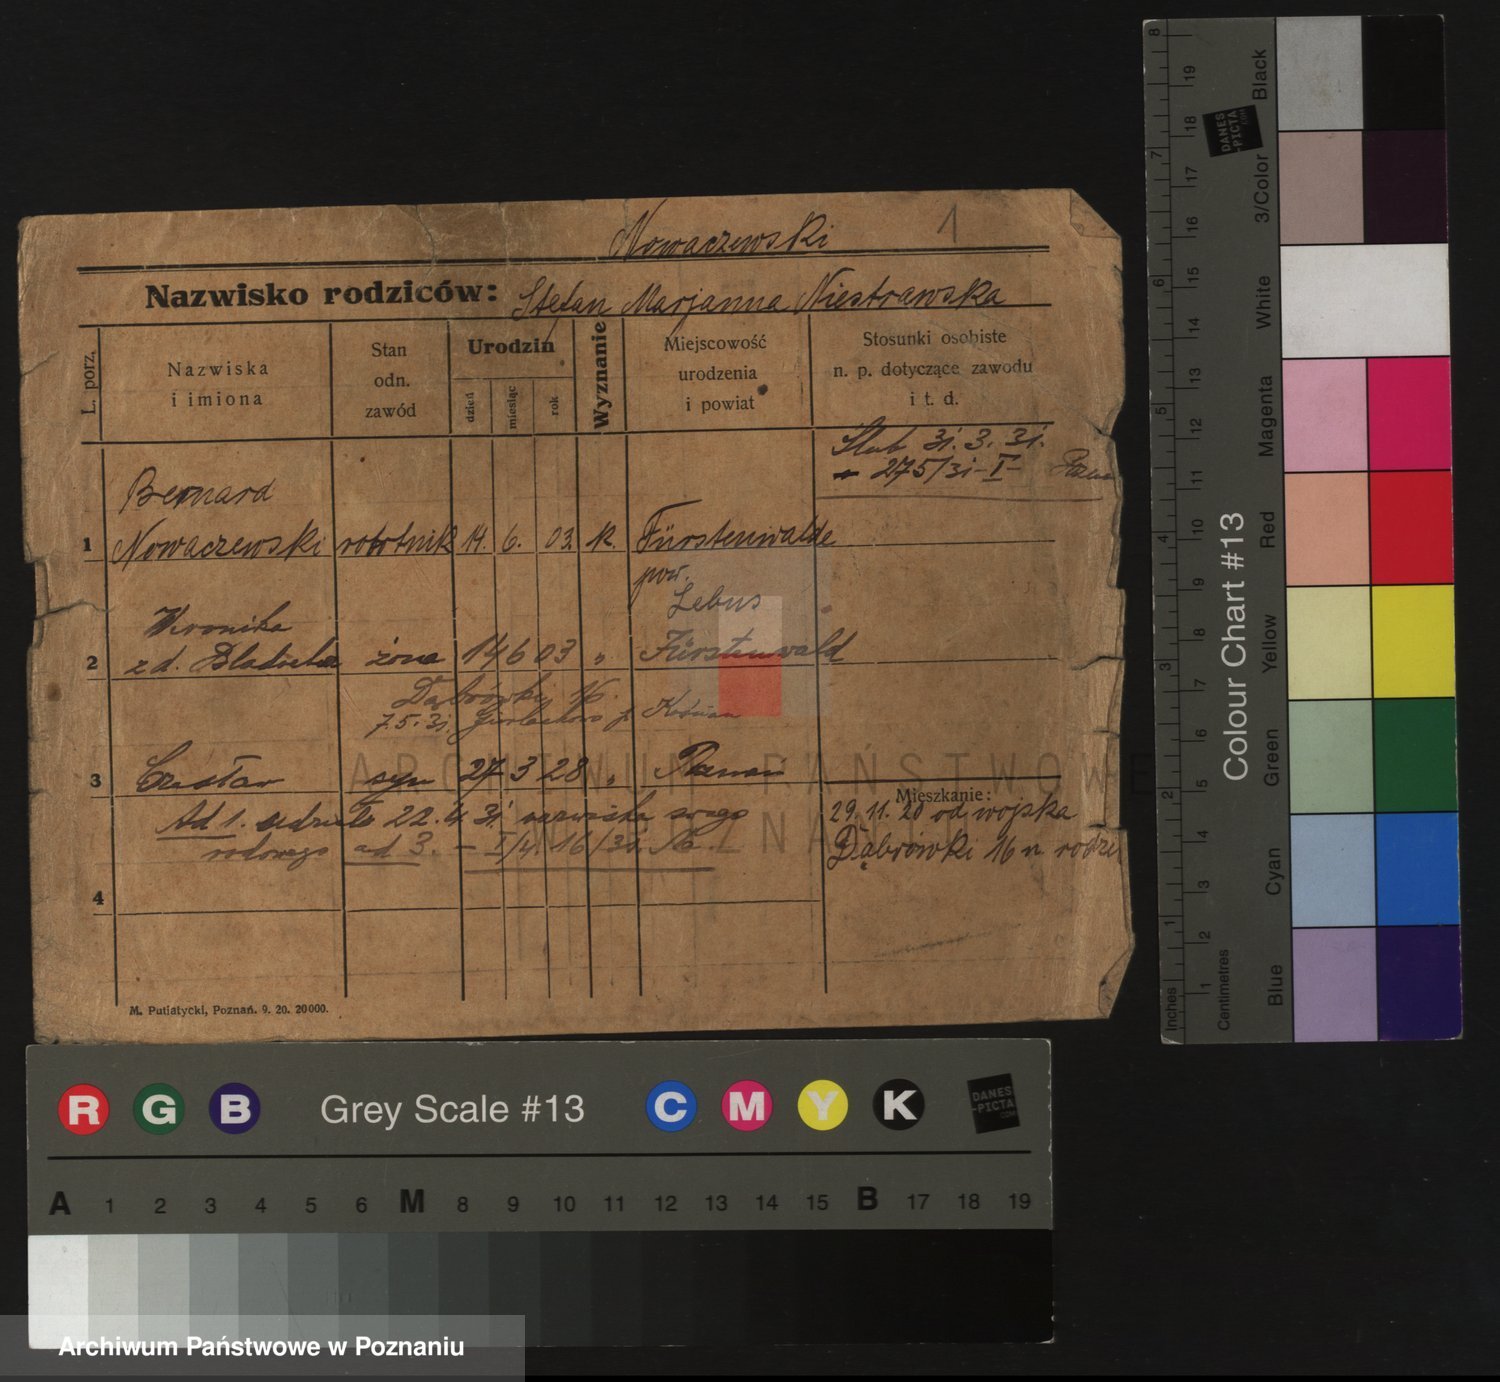 Nowaczewski 1
Nazwisko rodziców: Stefan Marjanna Niestrawska
L. porz.
Nazwiska
i imiona
Stan
odn.
zawód
Urodzin
dzień
miesiąc
rok
Wyznanie
Miejscowość
urodzenia
i powiat
Stosunki osobiste
n. p. dotyczące zawodu
i t. d.
Ślub 31. 3. 31.
275/31-I-
Bernard
1 Nowaczewski robotnik 14. 6. 03. k. Fürstenwalde
pow.
Lebus
Weronika
2 z d. żona 14 6 03 " Fürstenwald
Dąbrówki 16.
7.5.31.
3 Czesław syn 27 3 28 " Poznań
Ad 1. 22. 4 31 nazwiska swego
rodowego ad 3.
4
Mieszkanie:
29. 11. 20 od wojska
Dąbrówki 16 u rodzi
M. Putiatycki, Poznań. 9. 20. 20000.
ARCHIWUM PAŃSTWOWE
W POZNANIU
8 7 6 5 4 3 2 1 Inches
19 18 17 16 15 14 13 12 11 10 9 8 7 6 5 4 3 2 1 Centimetres
Colour Chart #13
Black
3/Color
White
Magenta
Red
Yellow
Green
Cyan
Blue
DANES
-PICTA
.COM
R G B Grey Scale #13 C M Y K
DANES
-PICTA
.COM
A 1 2 3 4 5 6 M 8 9 10 11 12 13 14 15 B 17 18 19
Archiwum Państwowe w Poznaniu